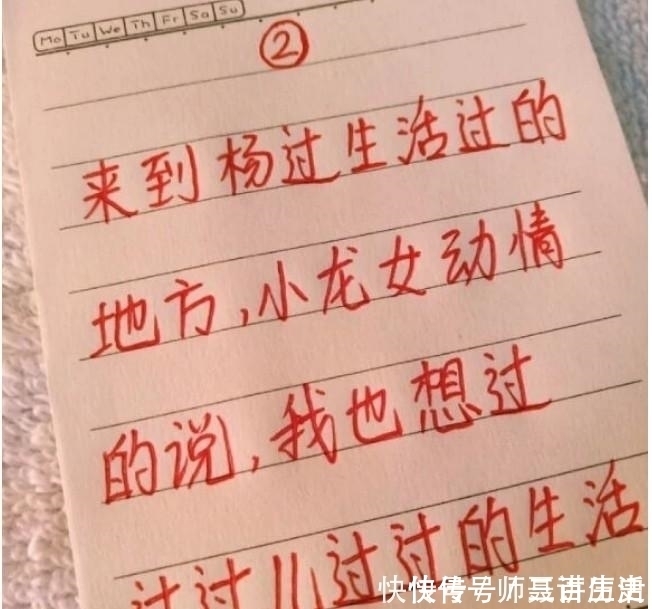 Mo Tu We Th Fr Sa Su
②
来到杨过生活过的
地方,小龙女动情
的说,我也想过
过过儿过过的生活